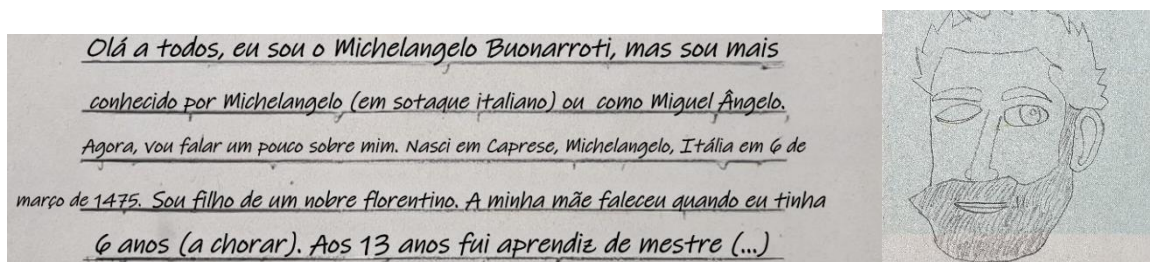 Olá a todos, eu sou o Michelangelo Buonarroti, mas sou mais
conhecido por Michelangelo (em sotaque italiano) ou como Miguel Ângelo.
Agora, vou falar um pouco sobre mim. Nasci em Caprese, Michelangelo, Itália em 6 de
março de 1475. Sou filho de um nobre florentino. A minha mãe faleceu quando eu tinha
6 anos (a chorar). Aos 13 anos fui aprendiz de mestre (...)